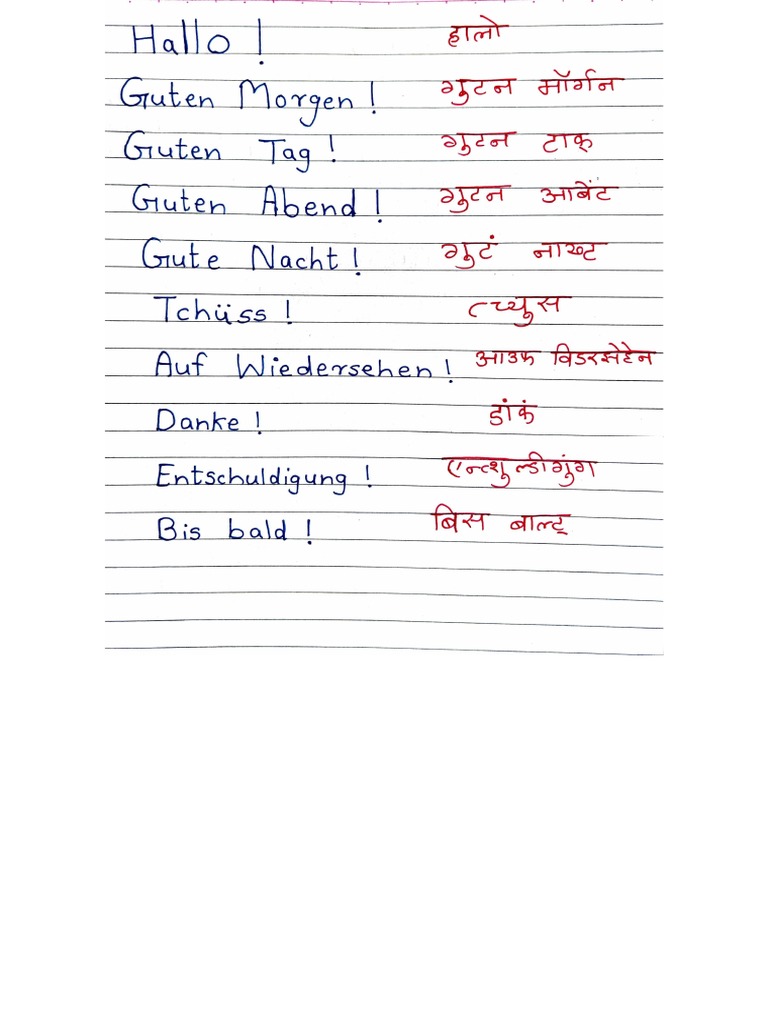 Hallo! हालो
Guten Morgen! गुटन मॉर्गन
Guten Tag! गुटन टाक्
Guten Abend! गुटन आबेंट
Gute Nacht! गुटं नाख्ट
Tchüss! त्च्युस
Auf Wiedersehen! आउफ विडरसेहेन
Danke! डांकं
Entschuldigung! एन्त्शुल्डीगुंग
Bis bald! बिस बाल्ट्